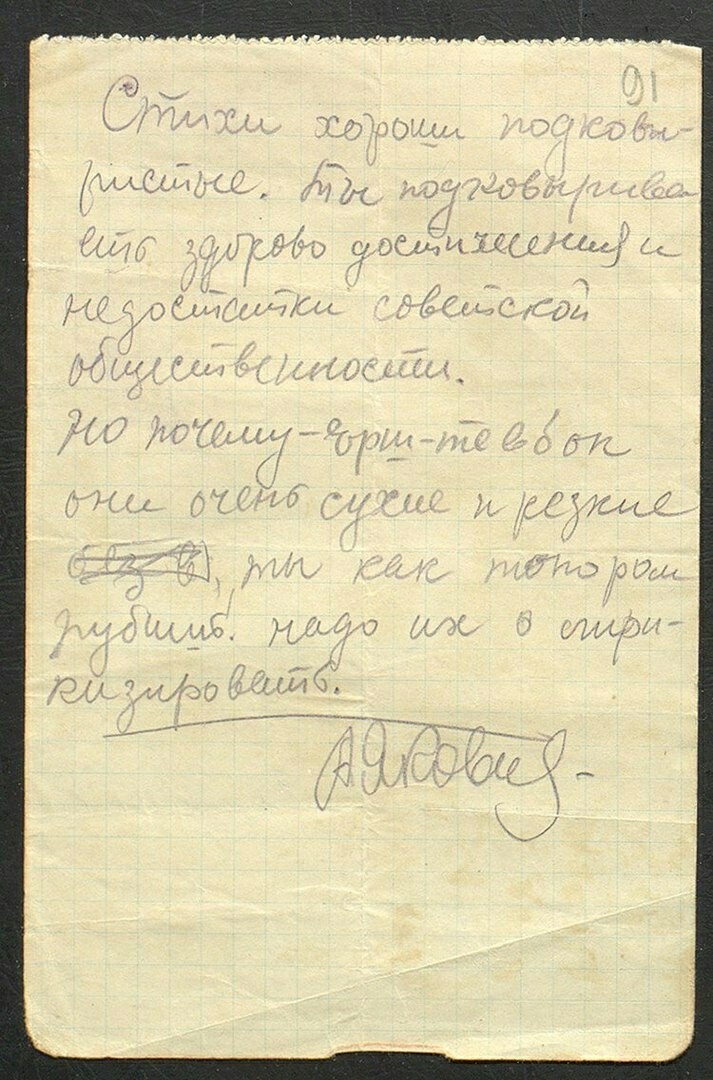 91
Стихи хороши подковы-
ристые. Ты подковырива
ешь здорово достижения и
недостатки советской
общественности.
Но почему-
они очень сухие и резкие
без в, ты как топором
рубишь. надо их
А Яковлев